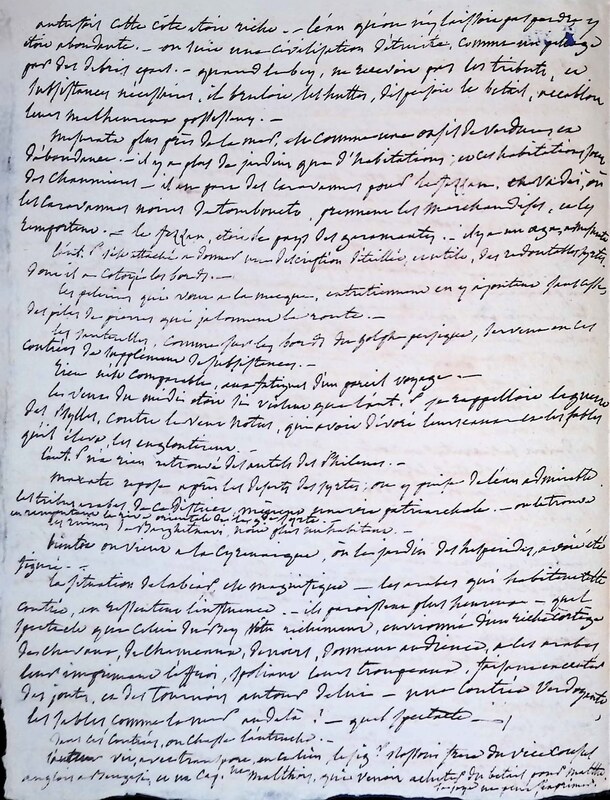 autrefois cette côte étoit riche. – l'eau qu'on n'y laissoit pas perdre, y
étoit abondante. – on suit une civilisation détruite, comme un
par des débris épars. – quand le bey, ne recevoit pas les tributs, et
subsistances nécessaires, il bruloit les huttes, dispersoit le betail, accabloit
leurs malheureux possesseurs. –
Mesurata plus près de la mer, est comme une oasis de verdure et
d'abondance. – il y a plus de jardins que d'habitations; et ces habitations sont
des chaumières – il en part des caravannes pour le fezzan, et
les caravannes noires de tombouctou, prennent les marchandises, et les
remportent. – le fezzan, étoit le pays des garamantes. – il y a un
l'aut. s'est attaché à donner une description détaillée, et utile, des redoutables syrtes,
dont il a cotoyé les bords. –
les pelerins qui vont à la mecque, entretiennent en y ajoutant sans cesse,
des piles de pierres qui jalonnent la route. –
les sauterelles, comme sur les bords du golphe persique, servent en ces
contrées de supplément de subsistances. –
Rien n'est comparable, aux fatigues d'un pareil voyage. –
les vents du midi étoit si violens que l'aut. se rappelloit la guerre
des Psylles, contre le vent Notus, qui avoit dévoré leurs eaux et les sables
qu'il éleva, les engloutirent. –
l'aut. n'a rien retrouvé des autels des Philenes. –
Maxate repose après les deserts des syrtes; on y puise de l'eau admirable
les tribus arabes de ce district, patriarchale. – on retrouve
en remontant la rive orientale de la gde syrte.
les ruines n'ont plus un habitant. –
bientôt on vient à la Cyrenaique, où le jardin des hesperides, avoit été
figuré. –
la situation de labiar est magnifique – les arabes qui habitent cette
contrée, en ressentent l'influence. – ils paroissent plus heureux – quel
spectacle que celui du Bey vêtu richement, environné d'un riche cortège
de chevaux, de chameaux, de noirs, donnant audience, à les arabes
leur imprimant l'effroi, spoliant leurs troupeaux faisant exécuter
des joutes, et des tournois autour de lui – une contrée verdoyante,
les sables comme la mer au delà! – quel spectacle –!
Dans ces contrées, on chasse l'autruche. –
l'auteur vit, avec transport, en ce lieu, le sigr Rossoni frere du vice consul
anglois à Bengazi, et un capne Malthois, qui venoit acheter du betail pour malthe.